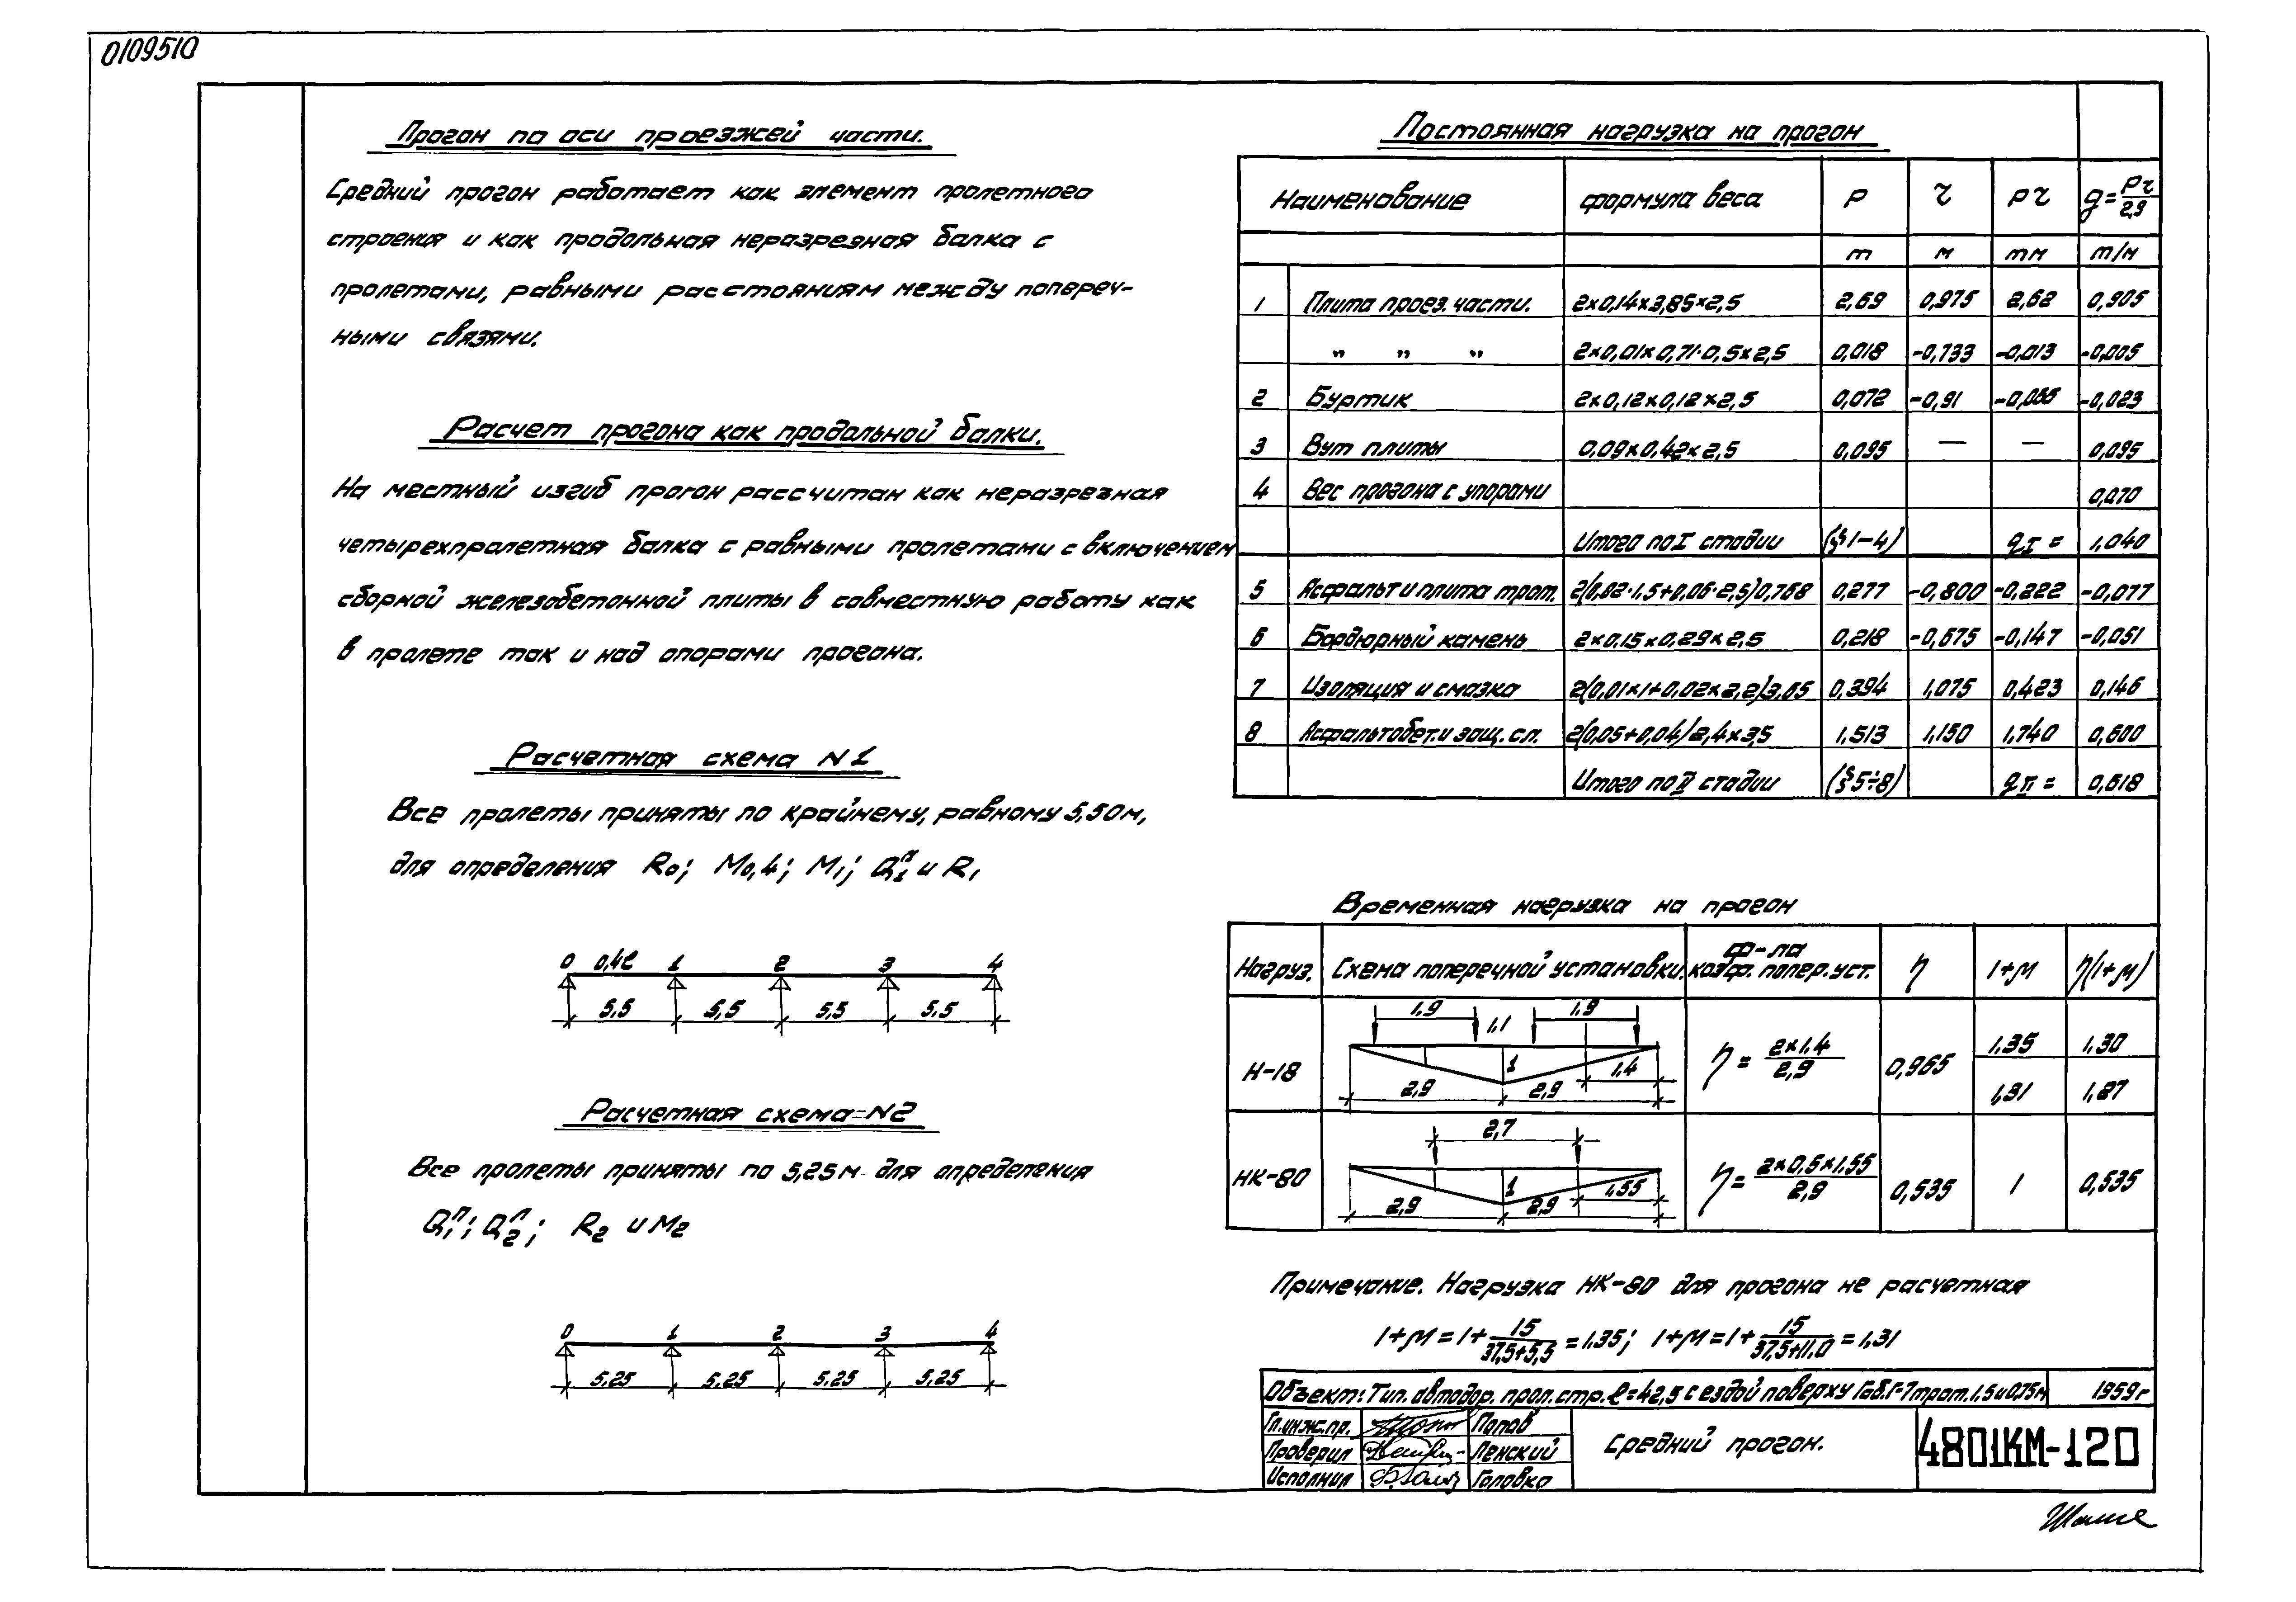 0109510
Прогон по оси проезжей части.
Средний прогон работает как элемент пролетного
строения и как продольная неразрезная балка с
пролетами, равными расстояниям между попереч-
ными связями.
Расчет прогона как продольной балки.
На местный изгиб прогон рассчитан как неразрезная
четырехпролетная балка с равными пролетами с включением
сборной железобетонной плиты в совместную работу как
в пролете так и над опорами прогона.
Расчетная схема N1
Все пролеты приняты по крайнему, равному 5,50м,
для определения R₀; M₀,₄; M₁; Q₁ᴫ и R₁
0 0,4ℓ 1 2 3 4
5,5 5,5 5,5 5.5
Расчетная схема-N2
Все пролеты приняты по 5,25м для определения
Q₁ⁿ; Q₂ᴫ; R₂ и M₂
0 1 2 3 4
5,25 5,25 5,25 5,25
Постоянная нагрузка на прогон
Наименование формула веса P r Pr g=Pr/2,9
т м тм т/м
1 Плита проез. части. 2×0,14×3,85×2,5 2,69 0,975 2,62 0,905
„ „ „ 2×0,01×0,71·0,5×2,5 0,018 -0,733 -0,013 -0,005
2 Буртик 2×0,12×0,12×2,5 0,072 -0,91 -0,066 -0,023
3 Вут плиты 0,09×0,42×2,5 0,095 — — 0,095
4 Вес прогона с упорами 0,070
Итого по I стадии (§1-4) gI = 1,040
5 Асфальт и плита трот. 2(0,02·1,5+0,06·2,5)0,768 0,277 -0,800 -0,222 -0,077
6 Бордюрный камень 2×0,15×0,29×2,5 0,218 -0,675 -0,147 -0,051
7 Изоляция и смазка 2(0,01×1+0,02×2,2)3,65 0,394 1,075 0,423 0,146
8 Асфальтобет. и защ. сл. 2(0,05+0,04)2,4×3,5 1,513 1,150 1,740 0,600
Итого по II стадии (§5÷8) gII = 0,618
Временная нагрузка на прогон
Нагруз. Схема поперечной установки. Ф-ла коэф. попер. уст. η 1+μ η(1+μ)
1,9 1,1 1,9
Н-18 1 1,4 2,9 2,9 η = 2×1.4/2,9 0,965 1,35 1,30
1,31 1,27
2,7
НК-80 1 1,55 2,9 2,9 η = 2×0,5×1.55/2,9 0,535 1 0,535
Примечание. Нагрузка НК-80 для прогона не расчетная
1+μ = 1+ 15/37,5+5,5 = 1.35; 1+μ = 1+ 15/37,5+11.0 = 1,31
Объект: Тип. автодор. прол. стр. ℓ=42,5 с ездой поверху Габ. Г-7 трот. 1,5 и 0,75м 1959г
Гл. инж. пр. Попов
Проверил Ленский
Исполнил Головко
Средний прогон.
4801КМ-120